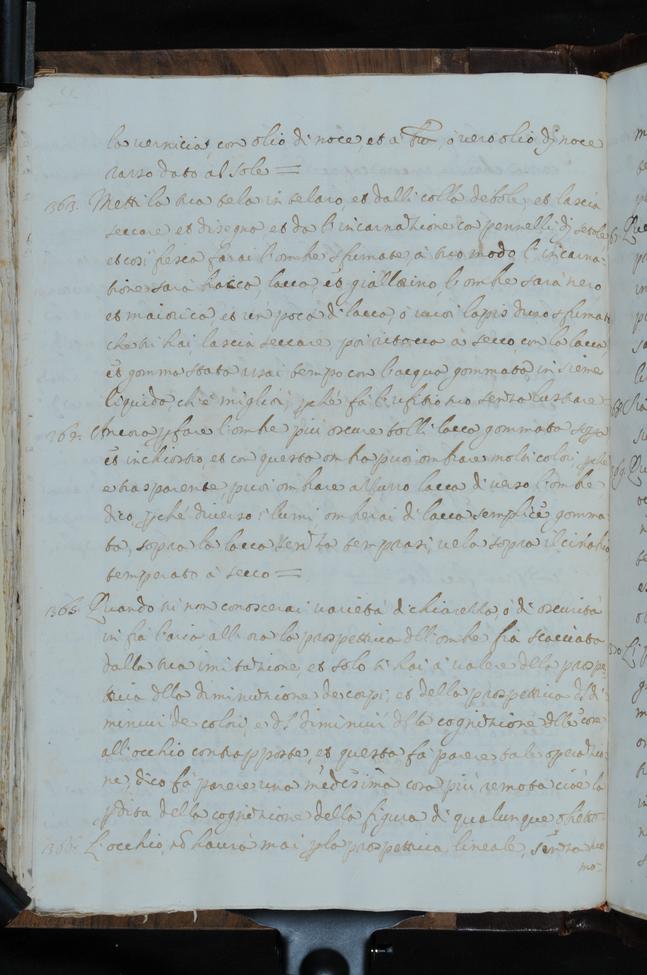 la vernicia, con olio di noce, et a fuo, o vero olio dj noce
rarso dato al sole =
363. Metti la tua tela in telaro, et dalli colla debole, et lascia
seccare et disegna et da l'incarnazione con pennelli dj setole
et così fresca farai l'ombre sfumate à tuo modo l'incarna-
tione sarà biacca, lacca, et giallorino, l'ombre sarà nero,
et maiorica et un poca di lacca, o vuoi lapis duro sfumat
che ti hai, lascia seccare, poi ritocca à secco, con la lacca,
et gomma stata assai tempo con l'acqua gommata insieme
liquida, ch'è miglior, pché fà l'ufitio suo senza lustrare
364. Ancora p fare l'ombre più oscure tolli lacca gommata sopra
et inchiostro, et con questa ombra puoi ombrare molti colori, pche
e trasparente, puoi ombrare azzurro lacca diverso l'ombre
dico, pché diverso i lumi ombrerai di lacca semplice gomma
ta, sopra la lacca senza temprasi, vela sopra il cinabro
temperato à secco =
365. Quando tu non conoscerai varietà di chiarezza, ò di oscurità
in frà l'aria all'ora la prospettiva dell'ombre fia scacciata
dalla tua imitazione, et solo ti hai a valere della prospe-
ttiva della diminuzione de corpi, et della prospettiva del di
minuir de colori, e del diminuir della cognizione delle cose
all'occhio contrapposte, et questa fà parere tale operatio-
ne, dico fà parere una medesima cosa più remota cioè la
pdita della cognizione della figura di qualunque obietto.
366. L'occhio, nō havrà mai p la prospettiva lineale, senza suo
mo-